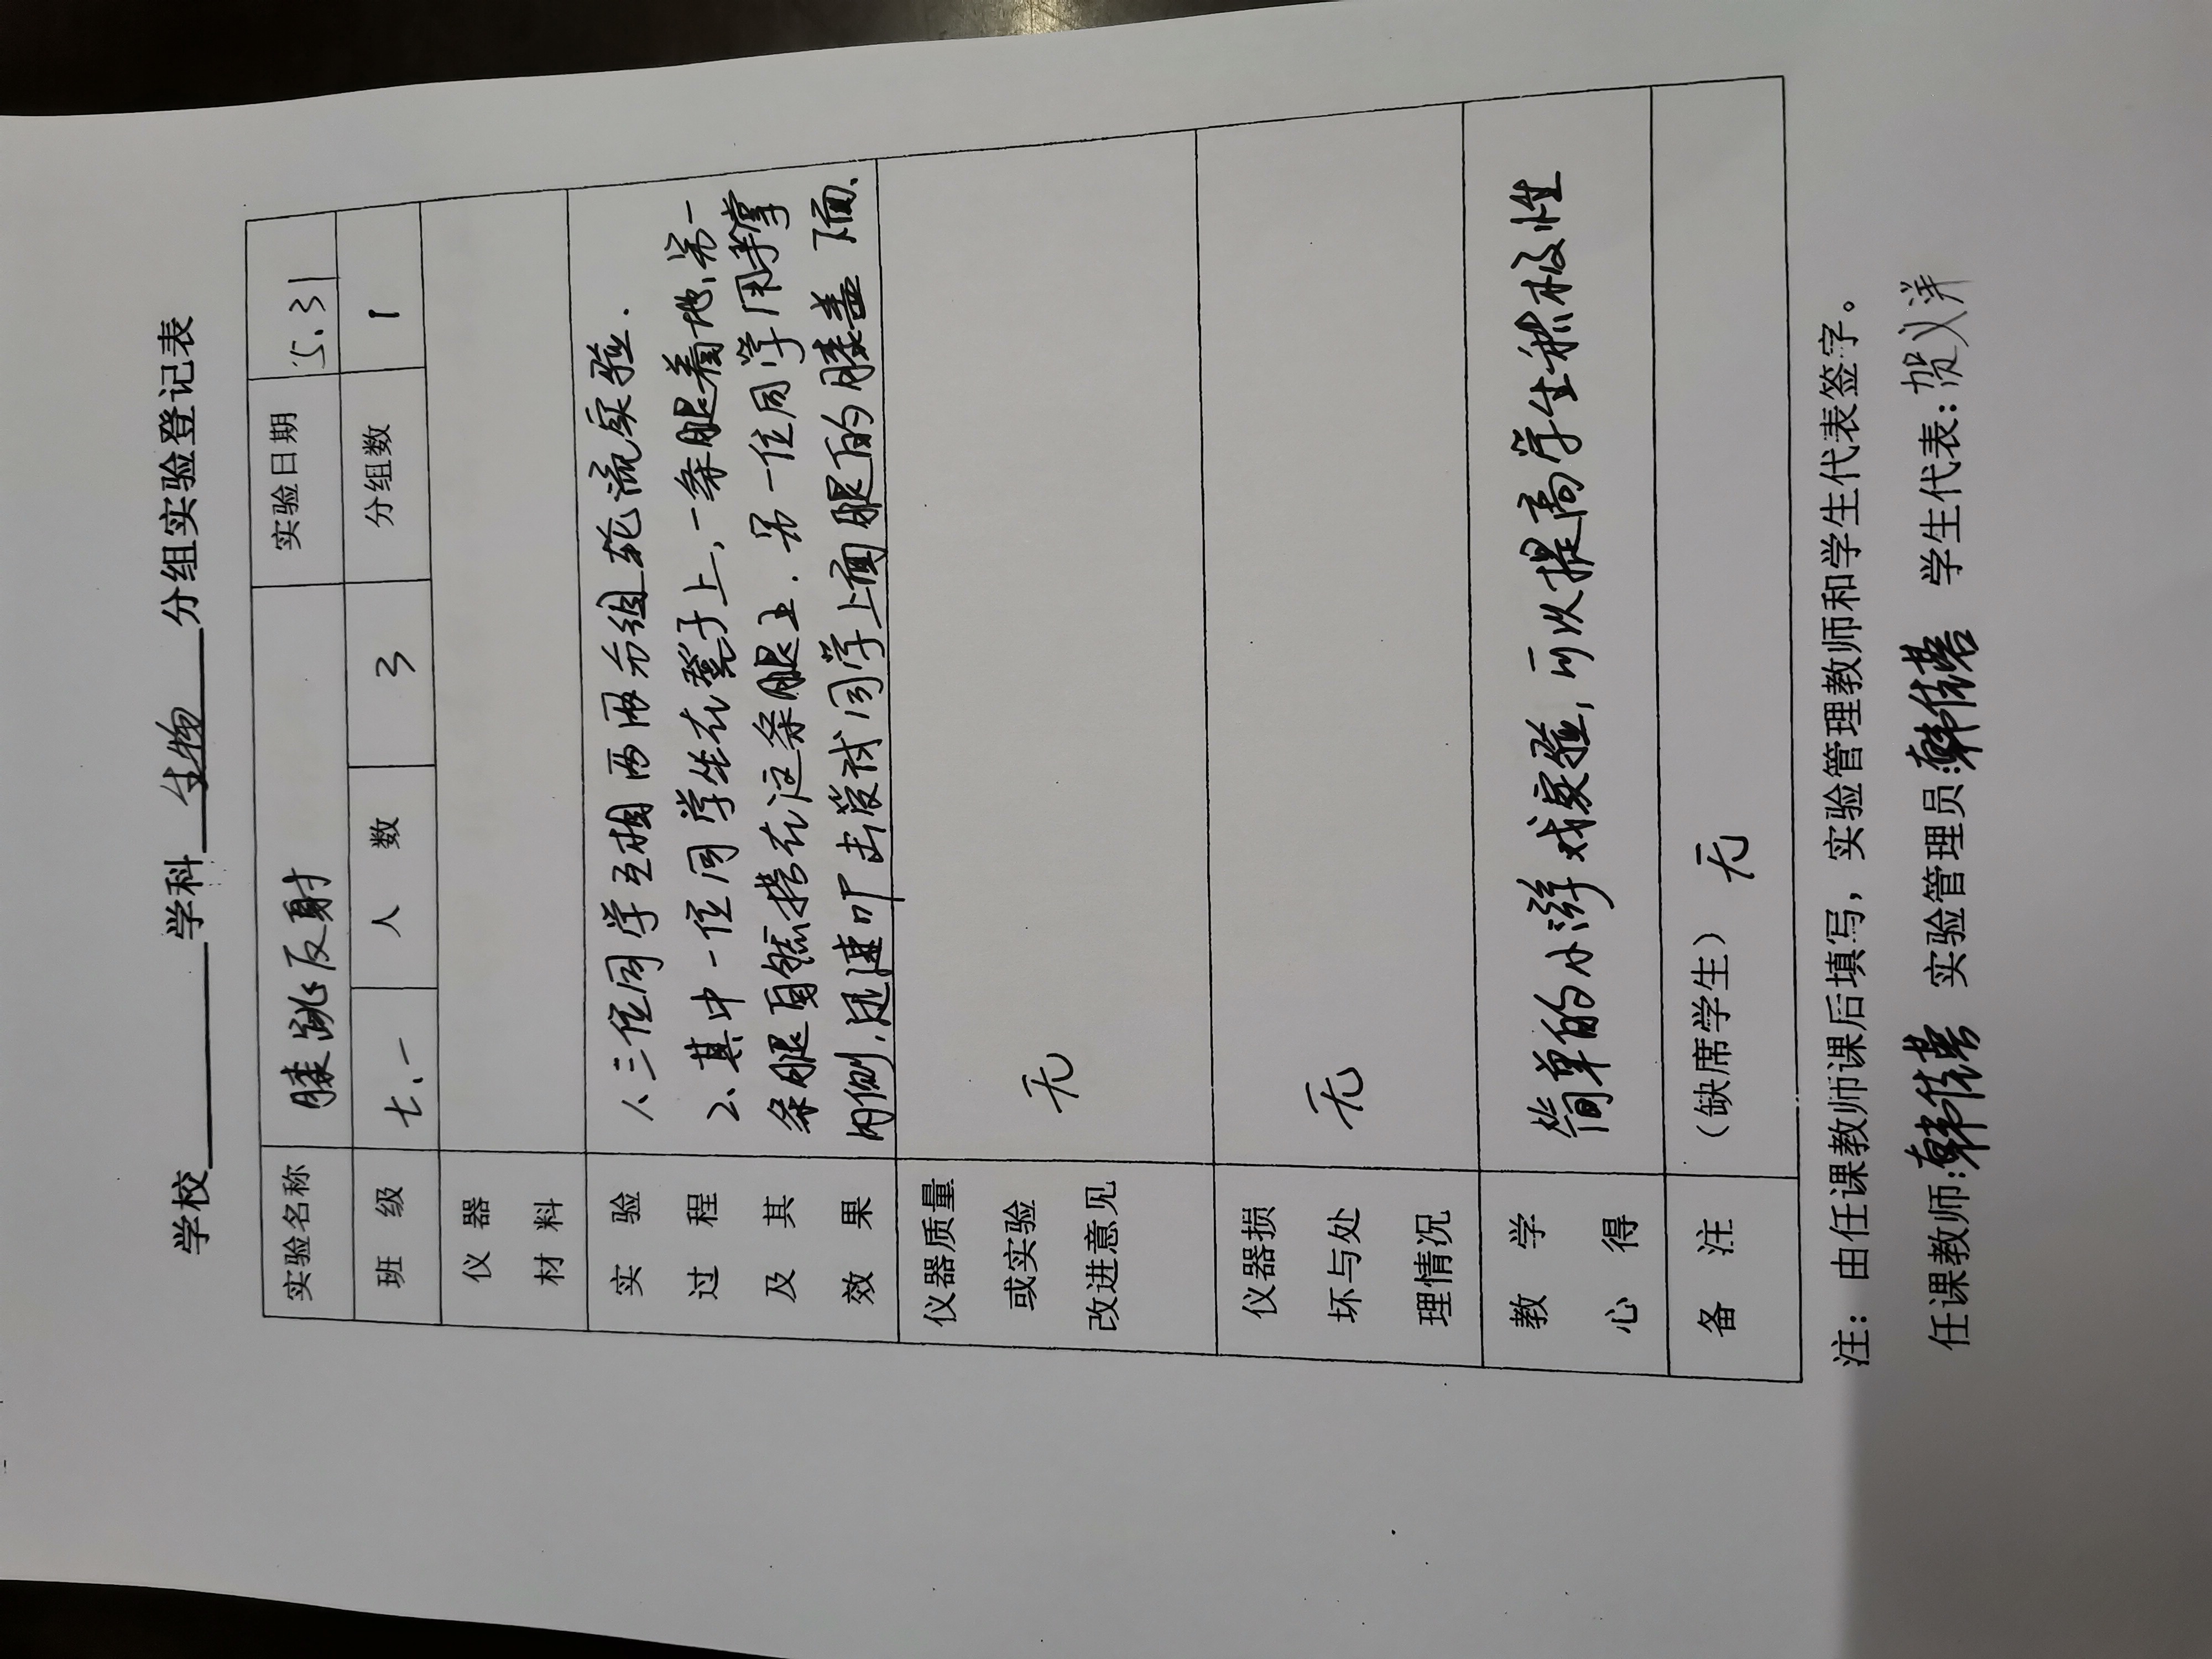 学校 学科 生物 分组实验登记表
实验名称 膝跳反射 实验日期 5.31
班级 七.一 人数 3 分组数 1
仪器
材料
实验
过程
及其
效果
1、三位同学互相两两分组轮流实验.
2、其中一位同学坐在凳子上,一条腿着地,另一
条腿自然搭在这条腿上.另一位同学用手掌
内侧,迅速叩击受试同学上面腿的膝盖下面、
仪器质量
或实验
改进意见
无
仪器损
坏与处
理情况
无
教学
心得
简单的小游戏实验,可以提高学生积极性
备注 (缺席学生) 无
注:由任课教师课后填写,实验管理教师和学生代表签字。
任课教师: 实验管理员: 学生代表:贺义洋